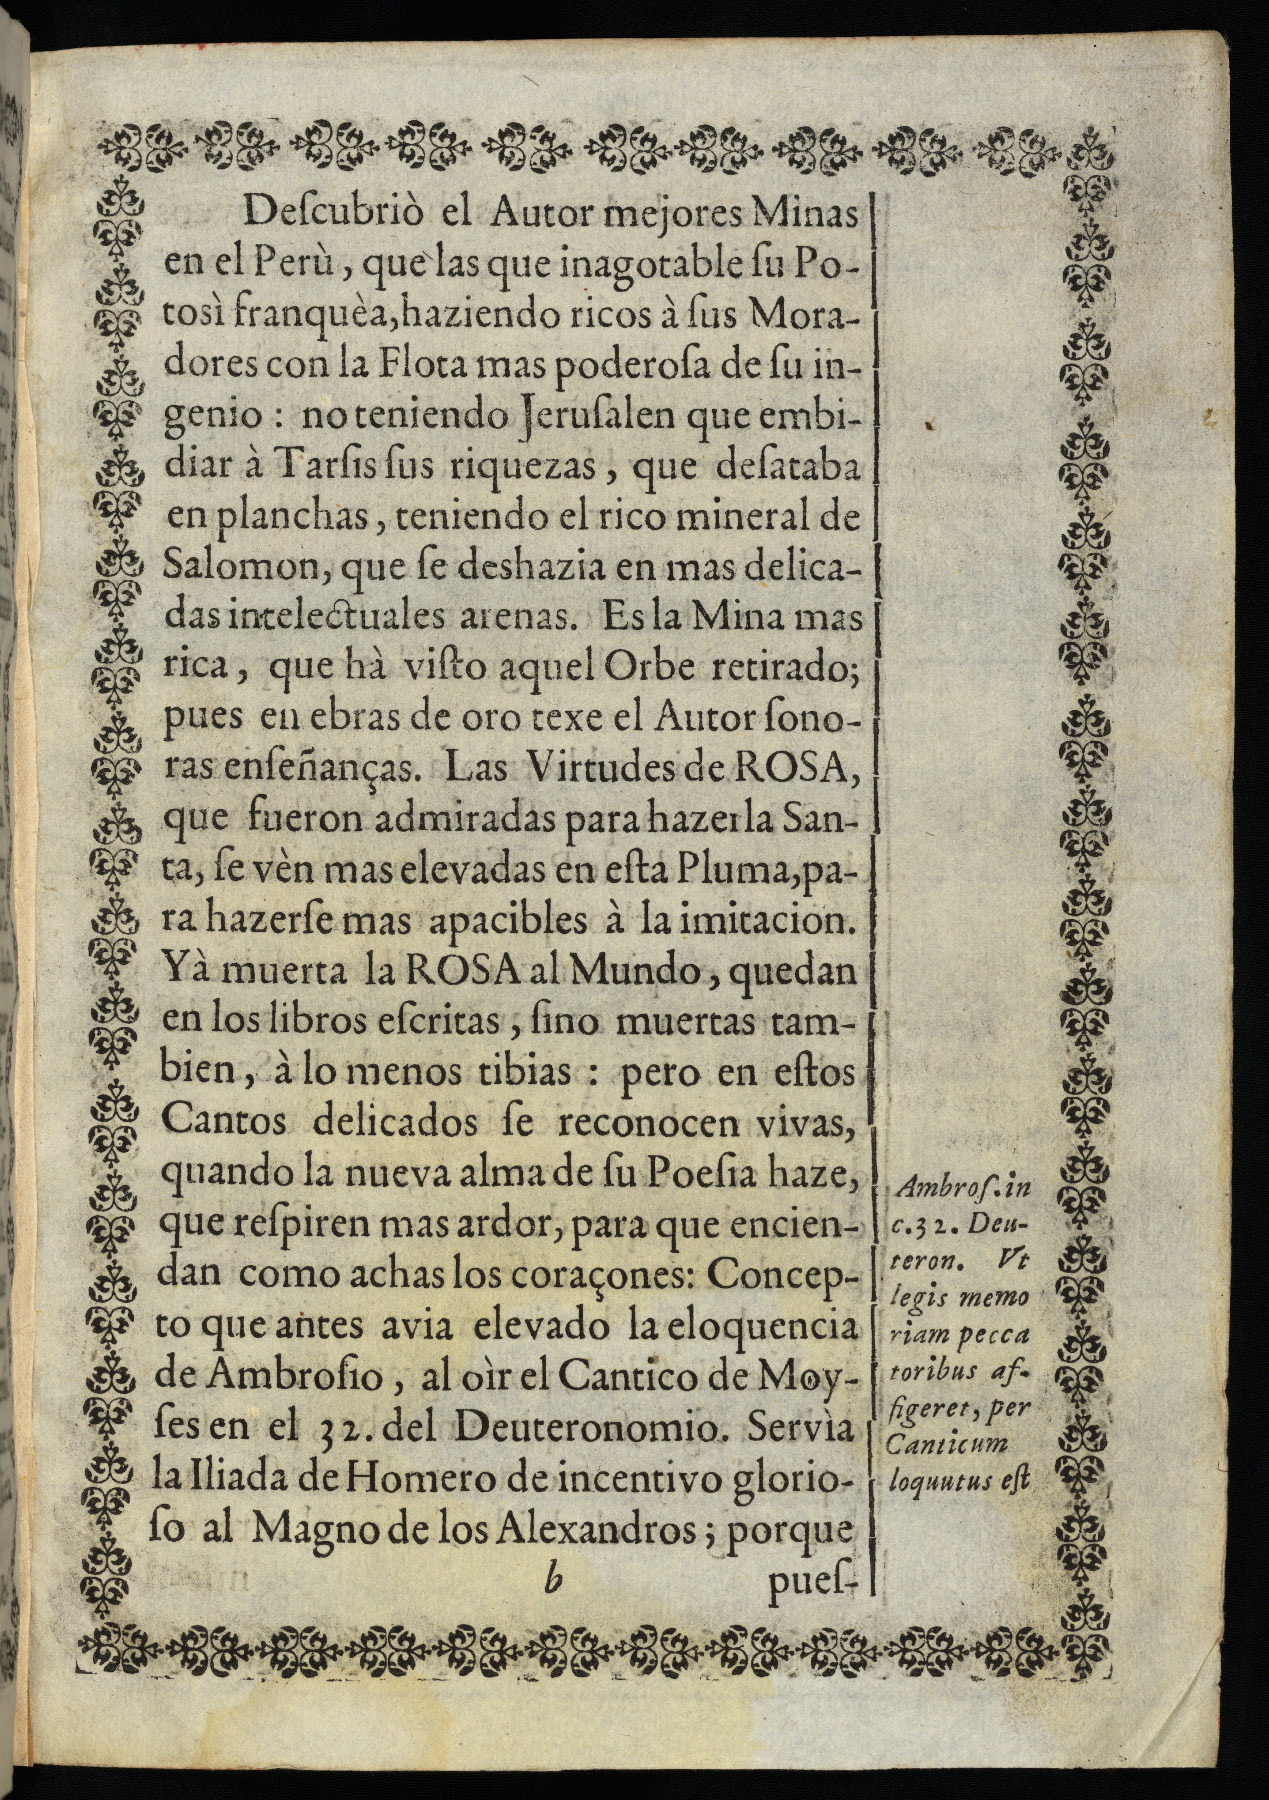 Deſcubriò el Autor mejores Minas
en el Perù, que las que inagotable ſu Po-
tosì franquèa, haziendo ricos à ſus Mora-
dores con la Flota mas poderoſa de ſu in-
genio : no teniendo Jeruſalen que embi-
diar à Tarſis ſus riquezas, que deſataba
en planchas, teniendo el rico mineral de
Salomon, que ſe deshazia en mas delica-
das intelectuales arenas. Es la Mina mas
rica, que hà viſto aquel Orbe retirado;
pues en ebras de oro texe el Autor ſono-
ras enſeñanças. Las Virtudes de ROSA,
que fueron admiradas para hazerla San-
ta, ſe vèn mas elevadas en eſta Pluma, pa-
ra hazerſe mas apacibles à la imitacion.
Yà muerta la ROSA al Mundo, quedan
en los libros eſcritas, ſino muertas tam-
bien, à lo menos tibias : pero en eſtos
Cantos delicados ſe reconocen vivas,
quando la nueva alma de ſu Poeſia haze,
que reſpiren mas ardor, para que encien-
dan como achas los coraçones: Concep-
to que antes avia elevado la eloquencia
de Ambroſio, al oìr el Cantico de Moy-
ſes en el 32. del Deuteronomio. Servìa
la Iliada de Homero de incentivo glorio-
ſo al Magno de los Alexandros; porque
b
pueſ-
Ambroſ. in
c. 32. Deu-
teron. Vt
legis memo
riam pecca
toribus af-
figeret, per
Canticum
loquutus eſt